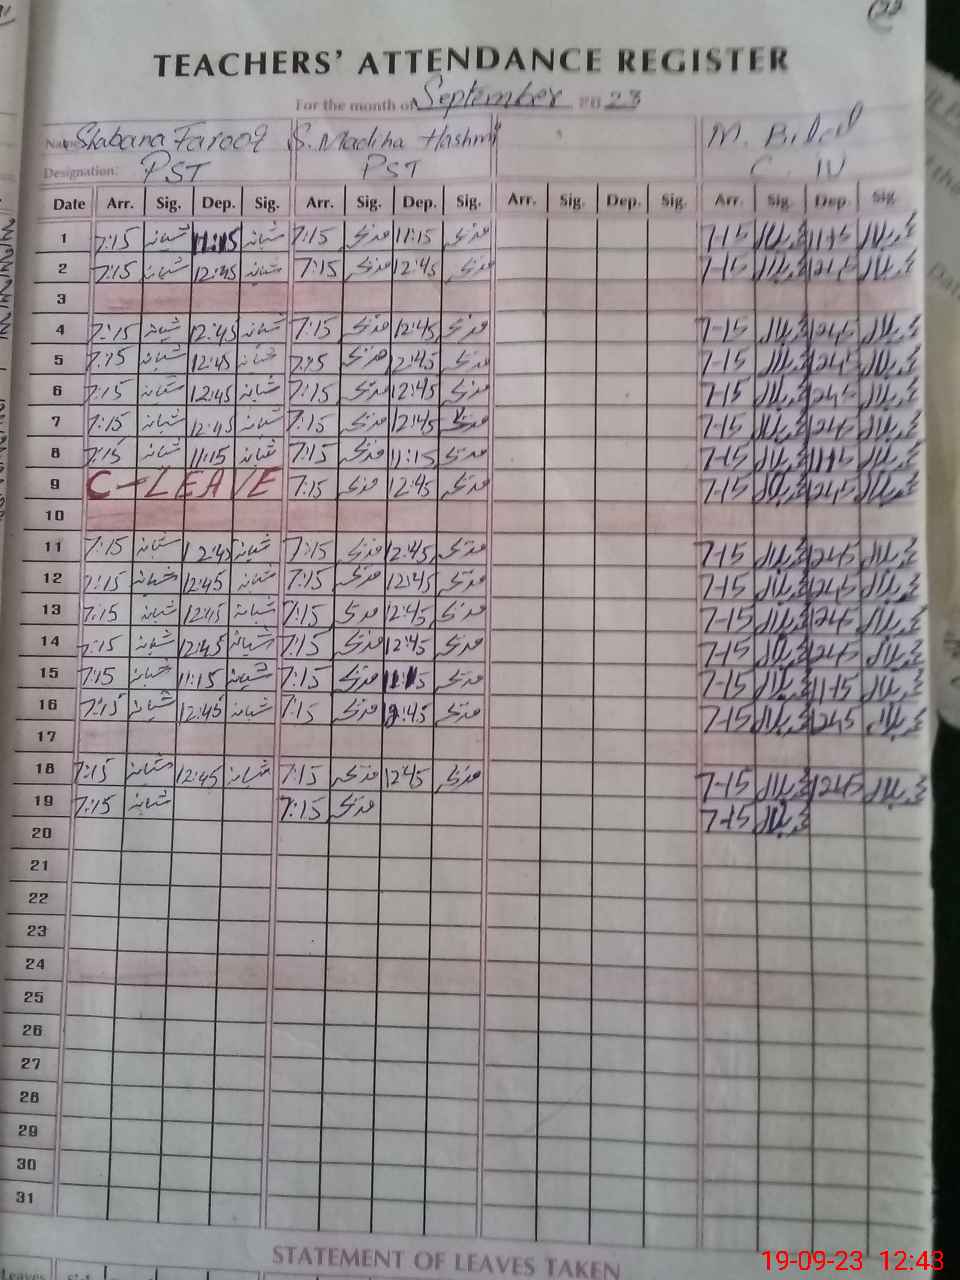 TEACHERS' ATTENDANCE REGISTER
For the month of September 2023
Name Shabana Farooq S. Madiha Hashmi M. Bilal
Designation: PST PST C. IV
Date Arr. Sig. Dep. Sig. Arr. Sig. Dep. Sig. Arr. Sig. Dep. Sig. Arr. Sig. Dep. Sig.
1 7:15 شبانہ 11:15 شبانہ 7:15 11:15 7-15 بلال 11-15 بلال
2 7:15 شبانہ 12:45 شبانہ 7:15 12:45 7-15 بلال 1245 بلال
3
4 7:15 شبانہ 12:45 شبانہ 7:15 12:45 7-15 بلال 1245 بلال
5 7:15 شبانہ 12:45 شبانہ 7:15 12:45 7-15 بلال 1245 بلال
6 7:15 شبانہ 12:45 شبانہ 7:15 12:45 7-15 بلال 1245 بلال
7 7:15 شبانہ 12:45 شبانہ 7:15 12:45 7-15 بلال 1245 بلال
8 7:15 شبانہ 11:15 شبانہ 7:15 11:15 7-15 بلال 1115 بلال
9 C-LEAVE 7:15 12:45 7-15 بلال 1245 بلال
10
11 7:15 شبانہ 12:45 شبانہ 7:15 12:45 7-15 بلال 1245 بلال
12 7:15 شبانہ 12:45 شبانہ 7:15 12:45 7-15 بلال 1245 بلال
13 7:15 شبانہ 12:45 شبانہ 7:15 12:45 7-15 بلال 1245 بلال
14 7:15 شبانہ 12:45 شبانہ 7:15 12:45 7-15 بلال 1245 بلال
15 7:15 شبانہ 11:15 شبانہ 7:15 11:15 7-15 بلال 11-15 بلال
16 7:15 شبانہ 12:45 شبانہ 7:15 12:45 7-15 بلال 1245 بلال
17
18 7:15 شبانہ 12:45 شبانہ 7:15 12:45 7-15 بلال 1245 بلال
19 7:15 شبانہ 7:15 7-15 بلال
20
21
22
23
24
25
26
27
28
29
30
31
STATEMENT OF LEAVES TAKEN
19-09-23 12:43